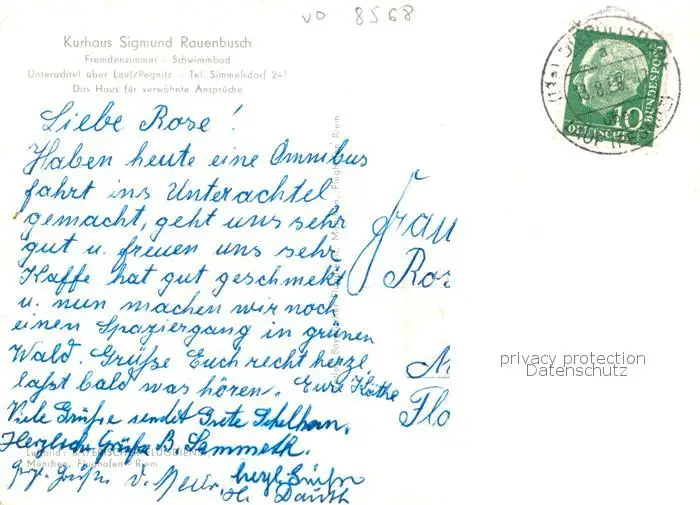 VO 8568
Kurhaus Sigmund Rauenbusch
Fremdenzimmer - Schwimmbad
Unterachtel über Lauf/Pegnitz - Tel. Simmelsdorf 247
Das Haus für verwöhnte Ansprüche
Liebe Rose!
Haben heute eine Omnibus
fahrt ins Unterachtel
gemacht, geht uns sehr
gut u. freuen uns sehr
Kaffe hat gut geschmekt
u. nun machen wir noch
einen Spaziergang in grünen
Wald. Grüße Euch recht herzl.
laßt bald was hören. Eure Käthe
Viele Grüße sendet Grete
Herzliche Grüße B. Lammeth.
Luftbild: BAYERISCHER FLUGDIENST
München, Flughafen Riem
herzl. Grüße
Frau
Ros
Flo
10
DEUTSCHE
BUNDESPOST
privacy protection
Datenschutz